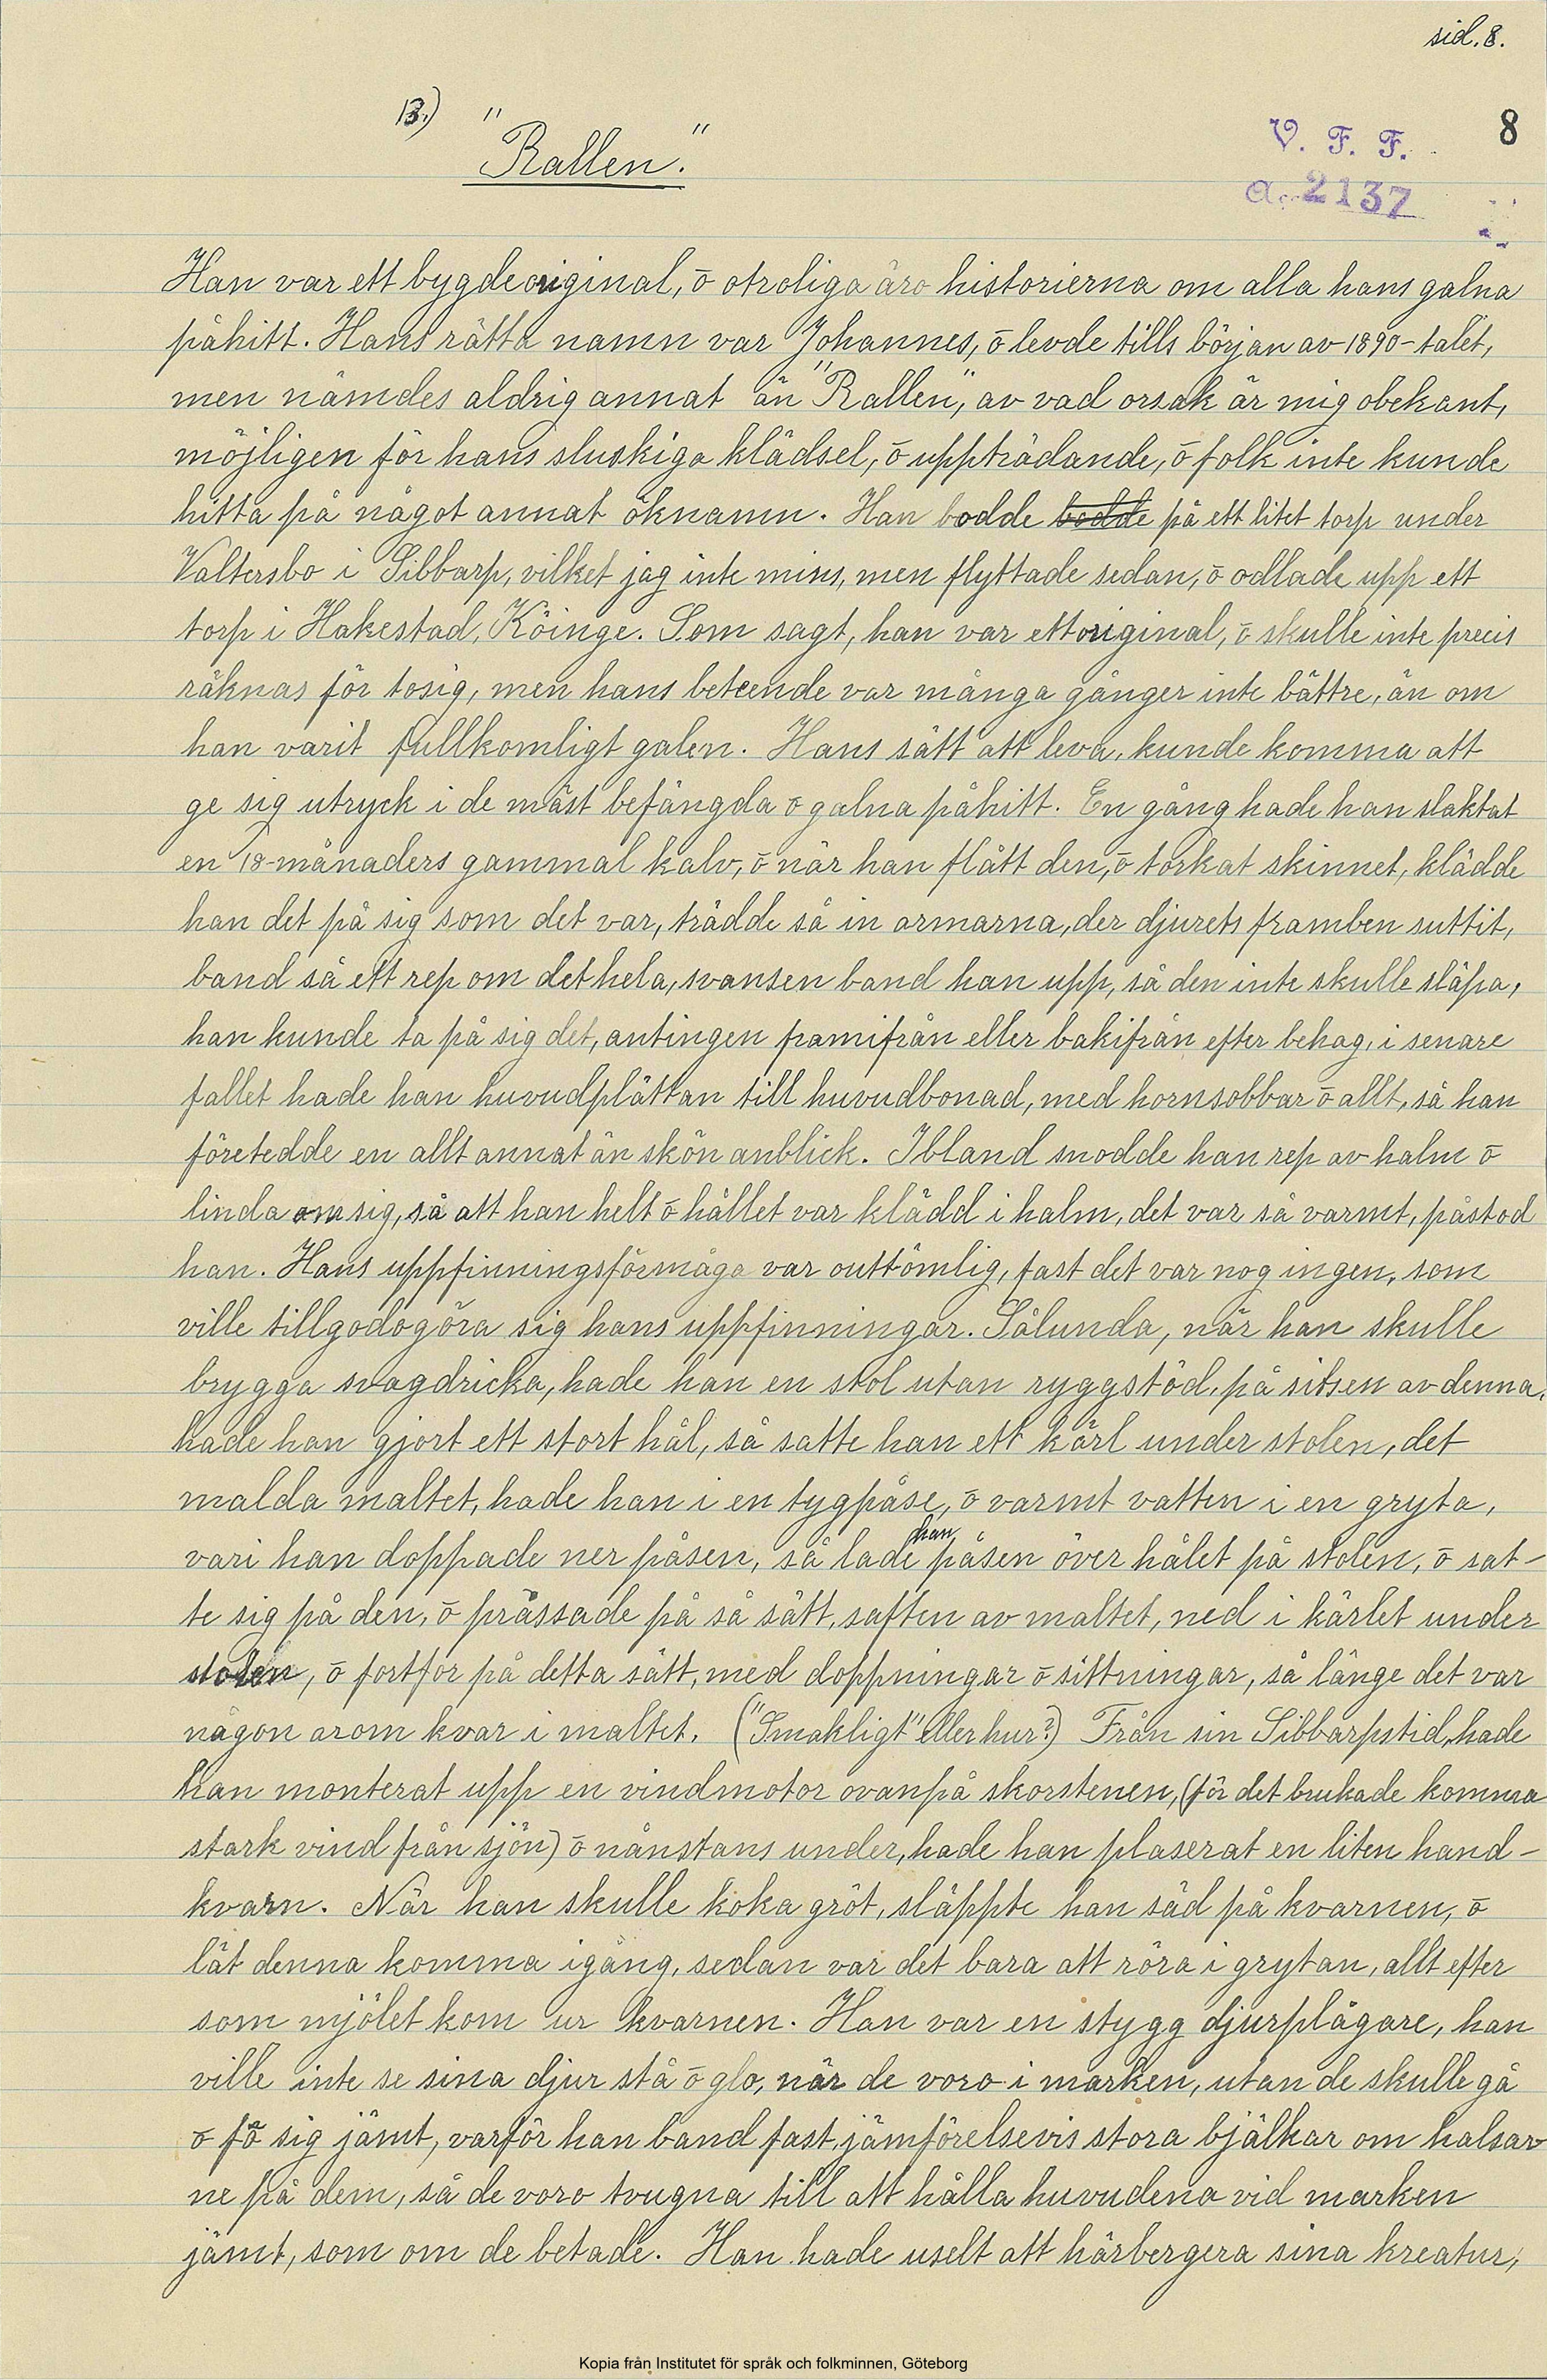 sid. 8.
13.) "Rallen."
8
V. F. F.
a. 2137
Han var ett bygdeoriginal, ō otroliga äro historierna om alla hans galna
påhitt. Hans rätta namn var Johannes, ō levde tills början av 1890-talet,
men nämdes aldrig annat än "Rallen", av vad orsak är mig obekant,
möjligen för hans sluskiga klädsel, ō uppträdande, ō folk inte kunde
hitta på något annat öknamn. Han bodde bodde på ett litet torp under
Valtersbo i Sibbarp, vilket jag inte mins, men flyttade sedan, ō odlade upp ett
torp i Hakestad, Köinge. Som sagt, han var ett original, ō skulle inte precis
räknas för tosig, men hans beteende var många gånger inte bättre, än om
han varit fullkomligt galen. Hans sätt att leva, kunde komma att
ge sig utryck i de mäst befängda ō galna påhitt. En gång hade han slaktat
en 18-månaders gammal kalv, ō när han flått den, ō torkat skinnet, klädde
han det på sig som det var, trädde så in armarna, der djurets framben suttit,
band så ett rep om det hela, svansen band han upp, så den inte skulle släpa,
han kunde ta på sig det, antingen framifrån eller bakifrån efter behag, i senare
fallet hade han huvudplättan till huvudbonad, med hornsobbar ō allt, så han
företedde en allt annat än skön anblick. Ibland snodde han rep av halm ō
linda om sig, så att han helt ō hållet var klädd i halm, det var så varmt, påstod
han. Hans uppfinningsförmåga var outtömlig, fast det var nog ingen, som
ville tillgodogöra sig hans uppfinningar. Sålunda, när han skulle
brygga svagdricka, hade han en stol utan ryggstöd, på sitsen av denna,
hade han gjort ett stort hål, så satte han ett kärl under stolen, det
malda maltet, hade han i en tygpåse, ō varmt vatten i en gryta,
vari han doppade ner påsen, så lade han påsen över hålet på stolen, ō sat-
te sig på den, ō prässade på så sätt, saften av maltet, ned i kärlet under
stolen, ō fortfor på detta sätt, med doppningar ō sittningar, så länge det var
någon arom kvar i maltet. ("Smakligt" eller hur?) Från sin Sibbarpstid, hade
han monterat upp en vindmotor ovanpå skorstenen, (för det brukade komma
stark vind från sjön) ō nånstans under, hade han plaserat en liten hand-
kvarn. När han skulle koka gröt, släppte han säd på kvarnen, ō
lät denna komma igång, sedan var det bara att röra i grytan, allt efter
som mjölet kom ur kvarnen. Han var en stygg djurplågare, han
ville inte se sina djur stå ō glo, när de voro i marken, utan de skulle gå
ō fö sig jämt, varför han band fast, jämförelsevis stora bjälkar om halsar
ne på dem, så de voro tvugna till att hålla huvudena vid marken
jämt, som om de betade. Han hade uselt att härbergera sina kreatur,
Kopia från Institutet för språk och folkminnen, Göteborg